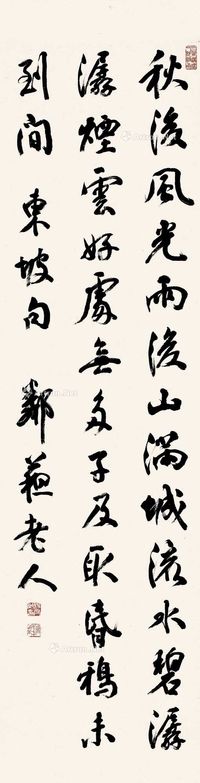 秋後風光雨後山滿城流水碧潺
潺煙雲好處無多子及取昏鴉未
到間 東坡句 鄰蘇老人